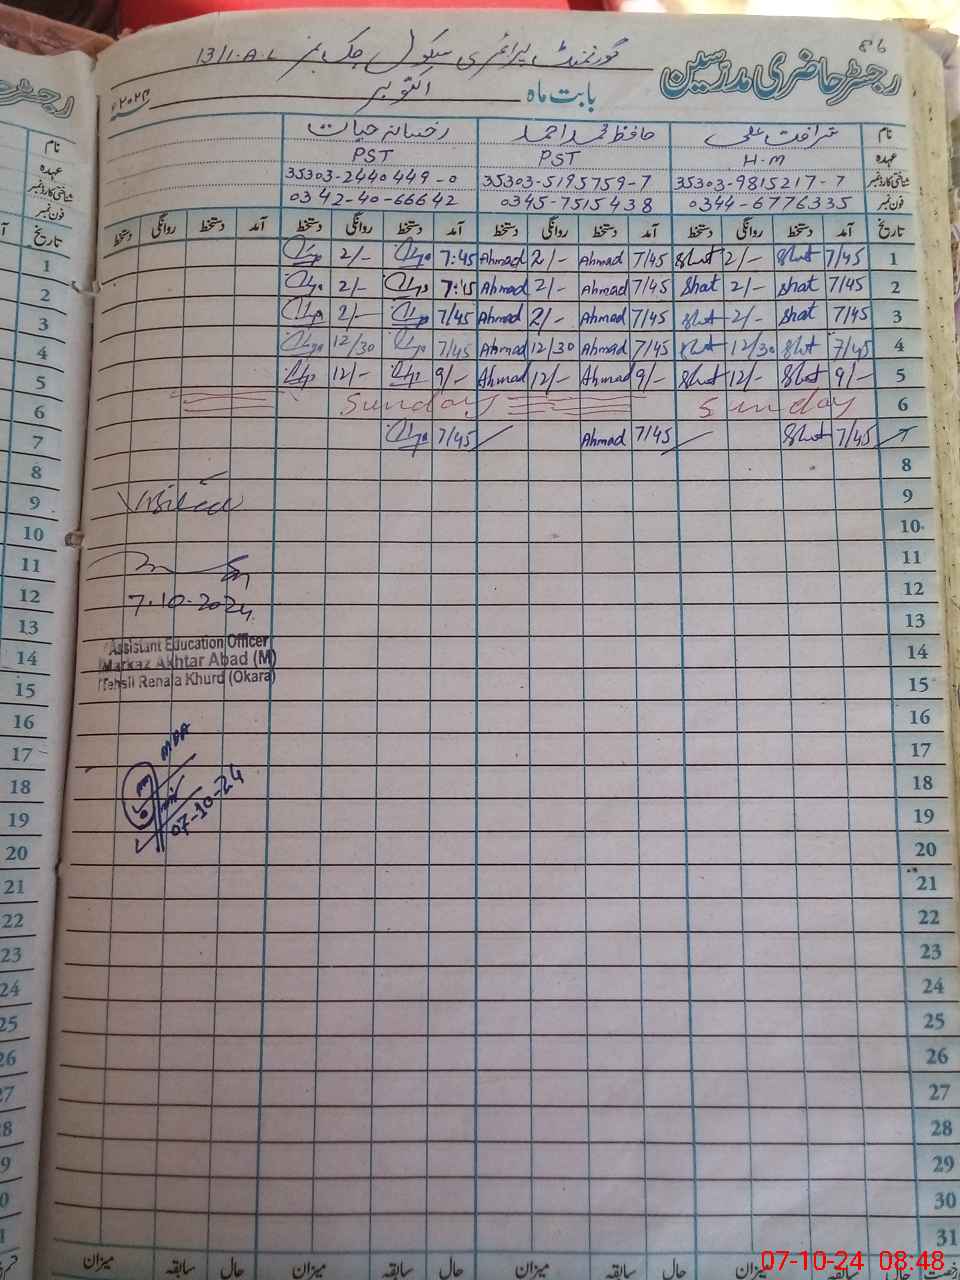 86
رجسٹر حاضری مدرسین گورنمنٹ پرائمری سکول چک نمبر 13/1.A.L
بابت ماہ اکتوبر ۲۰۲۴ء
نام شرافت علی حافظ محمد احمد رخسانہ حیات
عہدہ H.M PST PST
شناختی کارڈ نمبر 35303-9815217-7 35303-5195759-7 35303-2440449-0
فون نمبر 0344-6776335 0345-7515438 0342-40-66642
تاریخ آمد دستخط روانگی دستخط آمد دستخط روانگی دستخط آمد دستخط روانگی دستخط آمد دستخط روانگی دستخط
1 7/45 Shat 2/- Shat 7/45 Ahmad 2/- Ahmad 7:45 2/-
2 7/45 Shat 2/- Shat 7/45 Ahmad 2/- Ahmad 7:45 2/-
3 7/45 Shat 2/- Shat 7/45 Ahmad 2/- Ahmad 7/45 2/-
4 7/45 Shat 12/30 Shat 7/45 Ahmad 12/30 Ahmad 7/45 12/30
5 9/- Shat 12/- Shat 9/- Ahmad 12/- Ahmad 9/- 12/-
6 Sunday Sunday
7 7/45 Shat 7/45 Ahmad 7/45
8
9 Visited
10
11
12 7.10.2024
13
Assistant Education Officer
14 Markaz Akhtar Abad (M)
15 Tehsil Renala Khurd (Okara)
16
17 MEA
18
07-10-24
19
20
21
22
23
24
25
26
27
28
29
30
31
حال سابقہ میزان حال سابقہ میزان حال سابقہ میزان حال سابقہ میزان
07-10-24 08:48